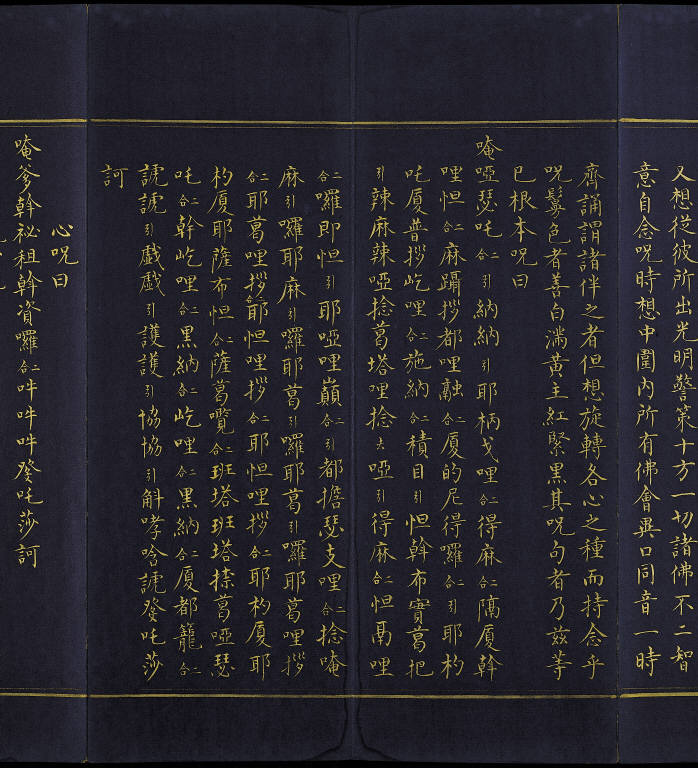 又想從彼所出光明警策十方一切諸佛不二智
意自念呪時想中圍内所有佛會異口同音一時
齊誦謂諸伴之者但想旋轉各心之種而持念乎
呪鬘色者善白滿黃主紅緊黑其呪句者乃茲等
巳根本呪曰
唵啞瑟吒二合引納納引耶柄戈哩二合得麻二合隔厦斡
哩怛二合麻躡拶都哩融二合厦的尼得囉二合引耶杓
吒厦普拶屹哩二合施納二合積目引怛斡布實葛把
引辣麻辣啞捻葛塔哩捻去啞引得麻二合怛鬲哩
二合囉即怛引耶啞哩巔二合引都擔瑟支哩二合捻唵
麻引囉耶麻引囉耶葛引囉耶葛引囉耶葛哩拶
二合耶葛哩拶二合耶怛哩拶二合耶怛哩拶二合耶杓厦耶
杓厦耶薩布怛二合薩葛囕二合班塔班塔捺葛啞瑟
吒二合斡屹哩二合黑納二合屹哩二合黑納二合厦都籠二合
諕諕引戲戲引護護引協協引斛哮唅諕發吒莎
訶
心呪曰
唵爹斡祕祖斡資囉二合吽吽吽發吒莎訶